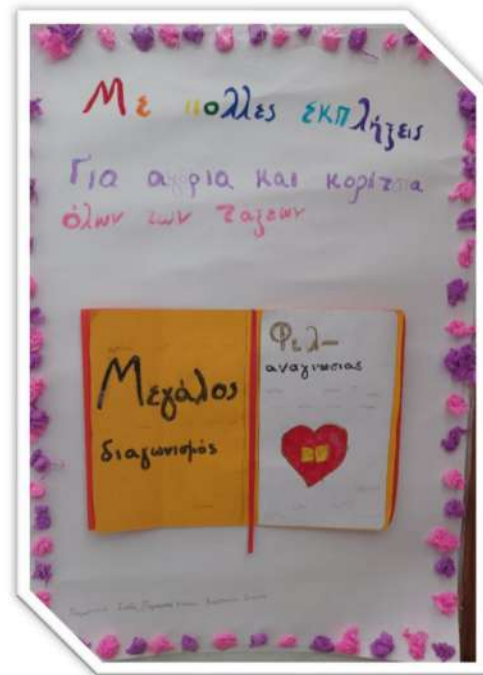 Με πολλες εκπλήξεις
Για αγόρια και κορίτσια
όλων των τάξεων
Μεγάλος
διαγωνισμός
Φιλ-
αναγνωσιας